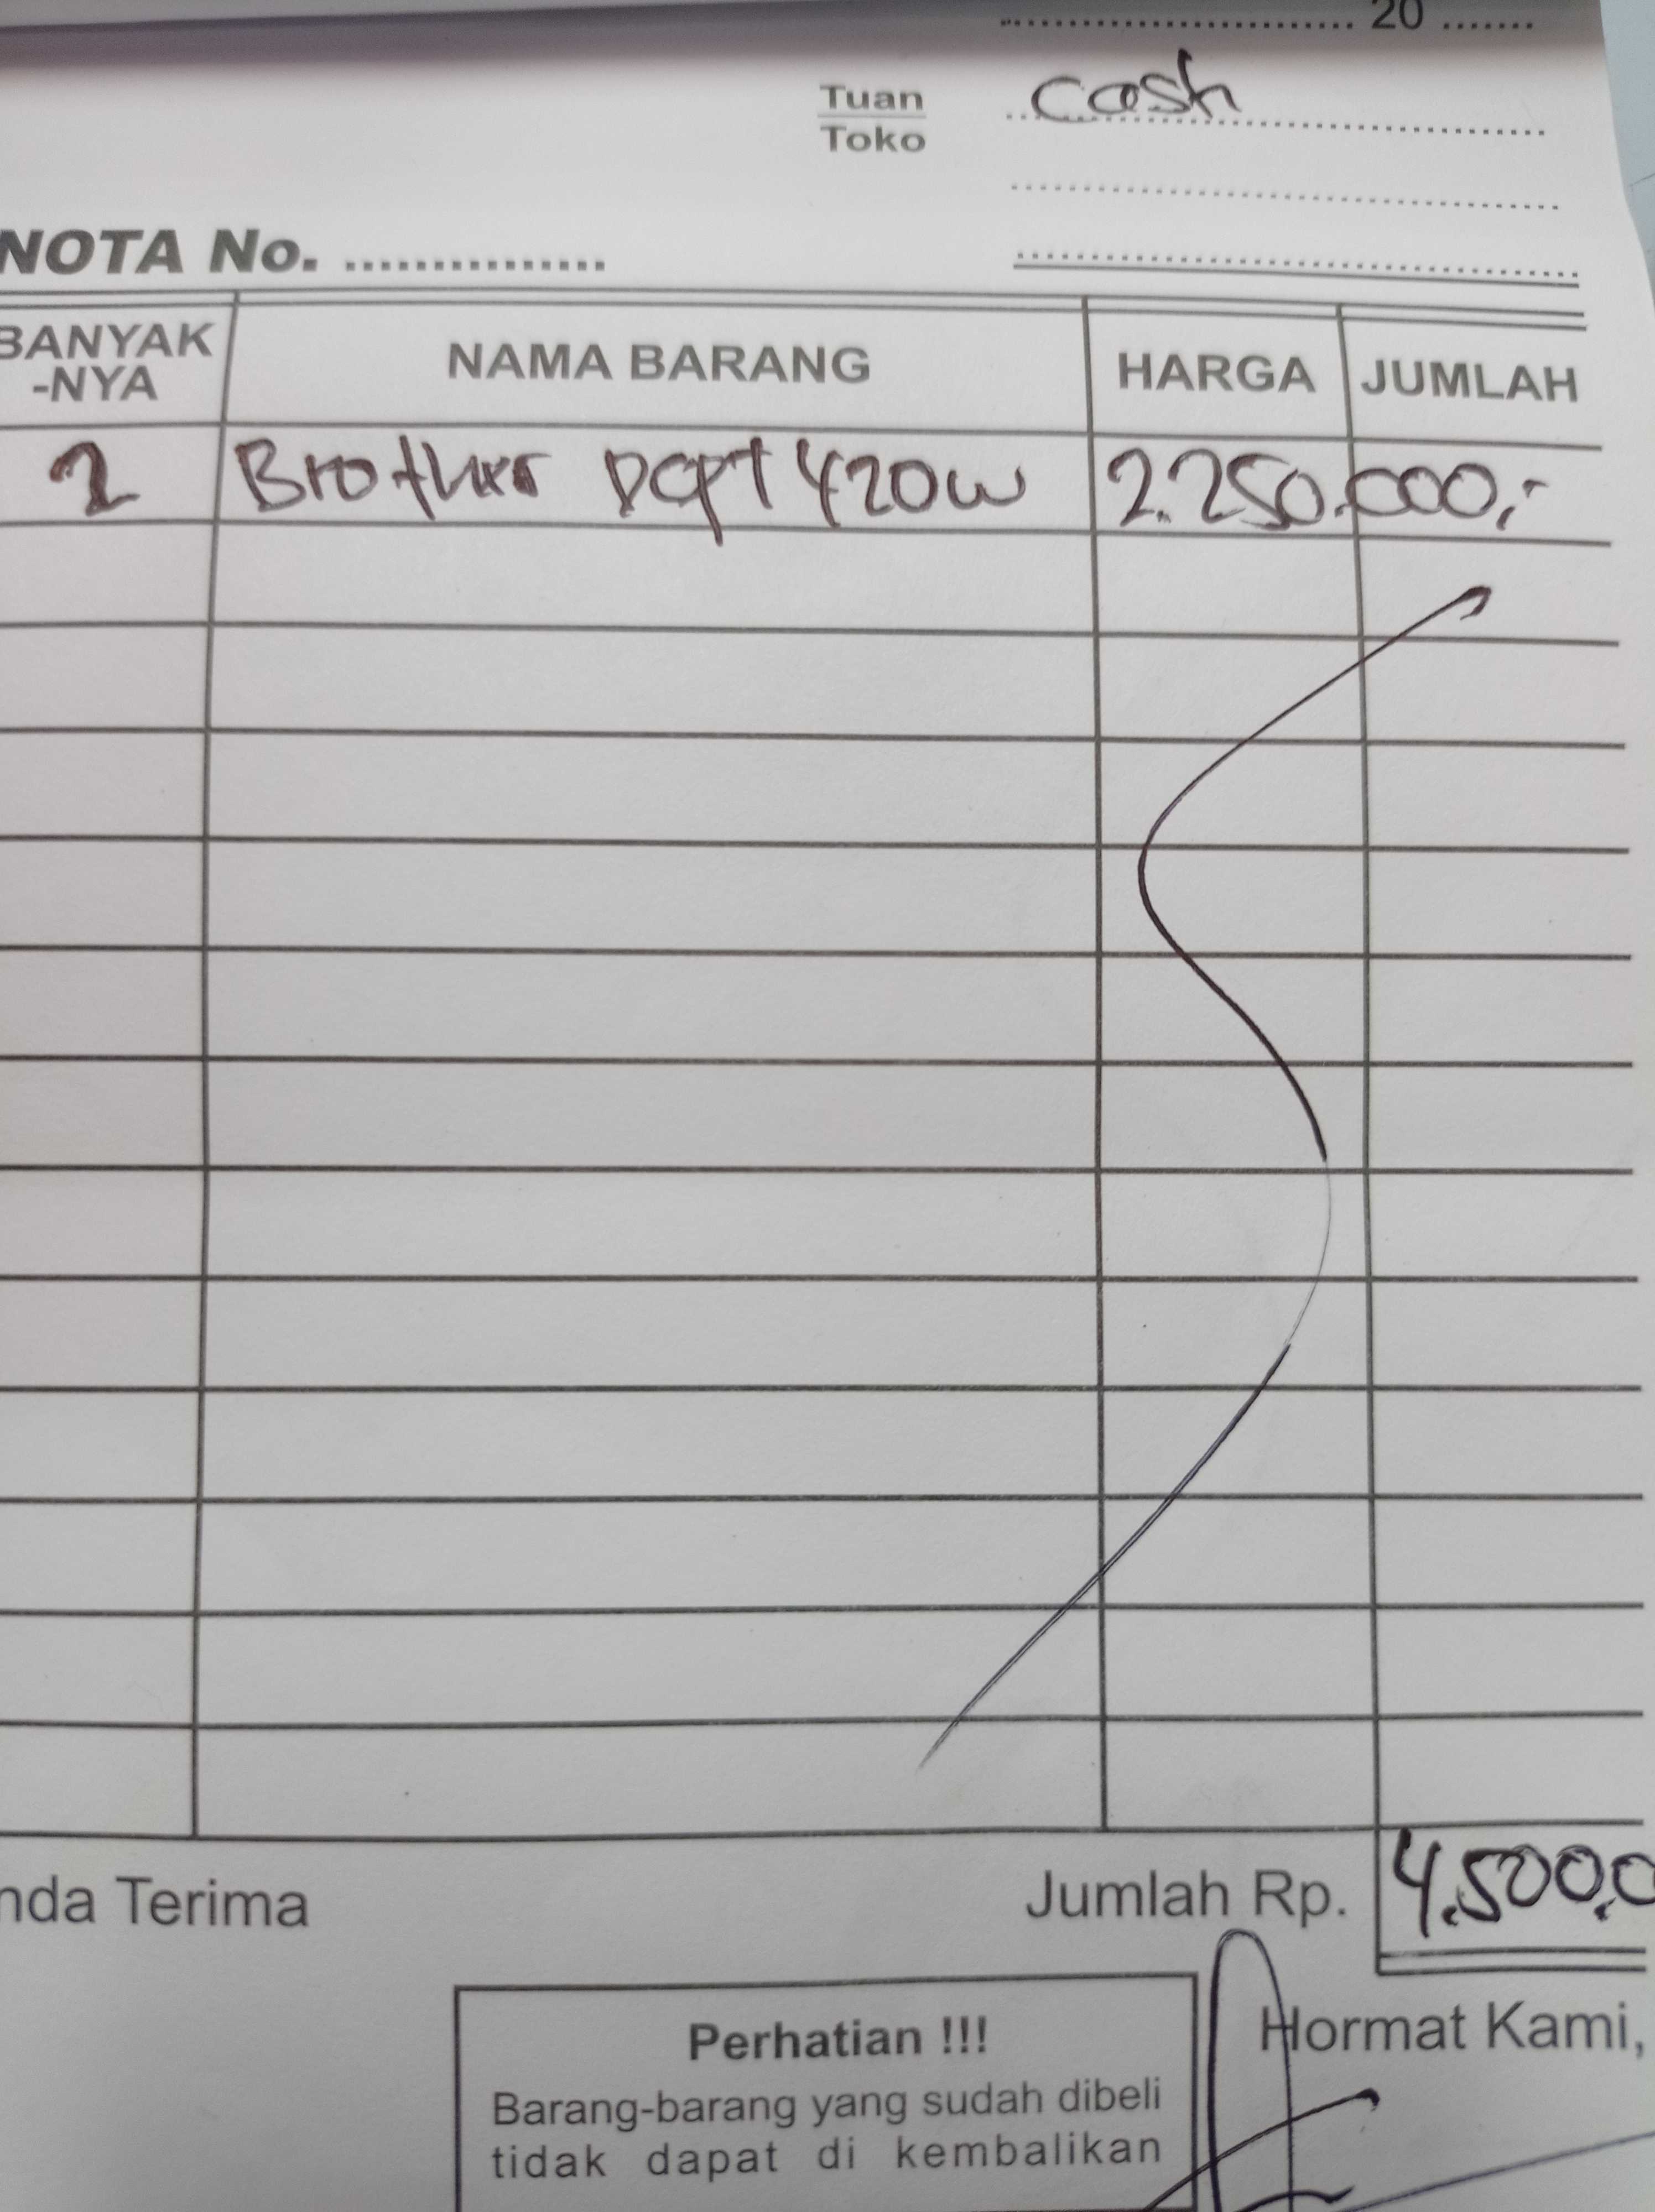 20
Tuan cash
Toko
NOTA No.
BANYAK
-NYA
NAMA BARANG
HARGA
JUMLAH
2 Brother DCPT 420W 2.250.000,-
nda Terima
Jumlah Rp. 4.500.0
Perhatian !!!
Hormat Kami,
Barang-barang yang sudah dibeli
tidak dapat di kembalikan